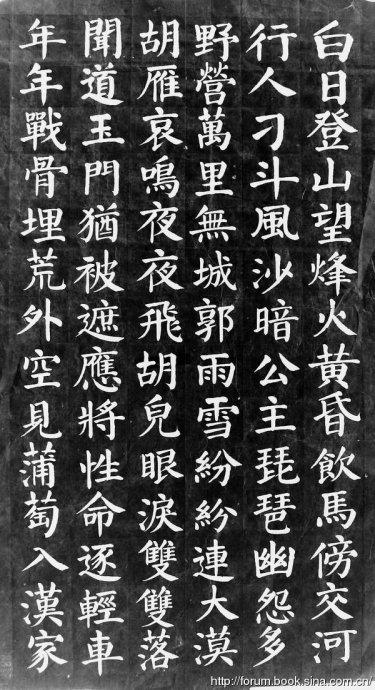 白日登山望烽火黃昏飲馬傍交河
行人刁斗風沙暗公主琵琶幽怨多
野營萬里無城郭雨雪紛紛連大漠
胡雁哀鳴夜夜飛胡兒眼淚雙雙落
聞道玉門猶被遮應將性命逐輕車
年年戰骨埋荒外空見蒲萄入漢家
http://forum.book.sina.com.cn/